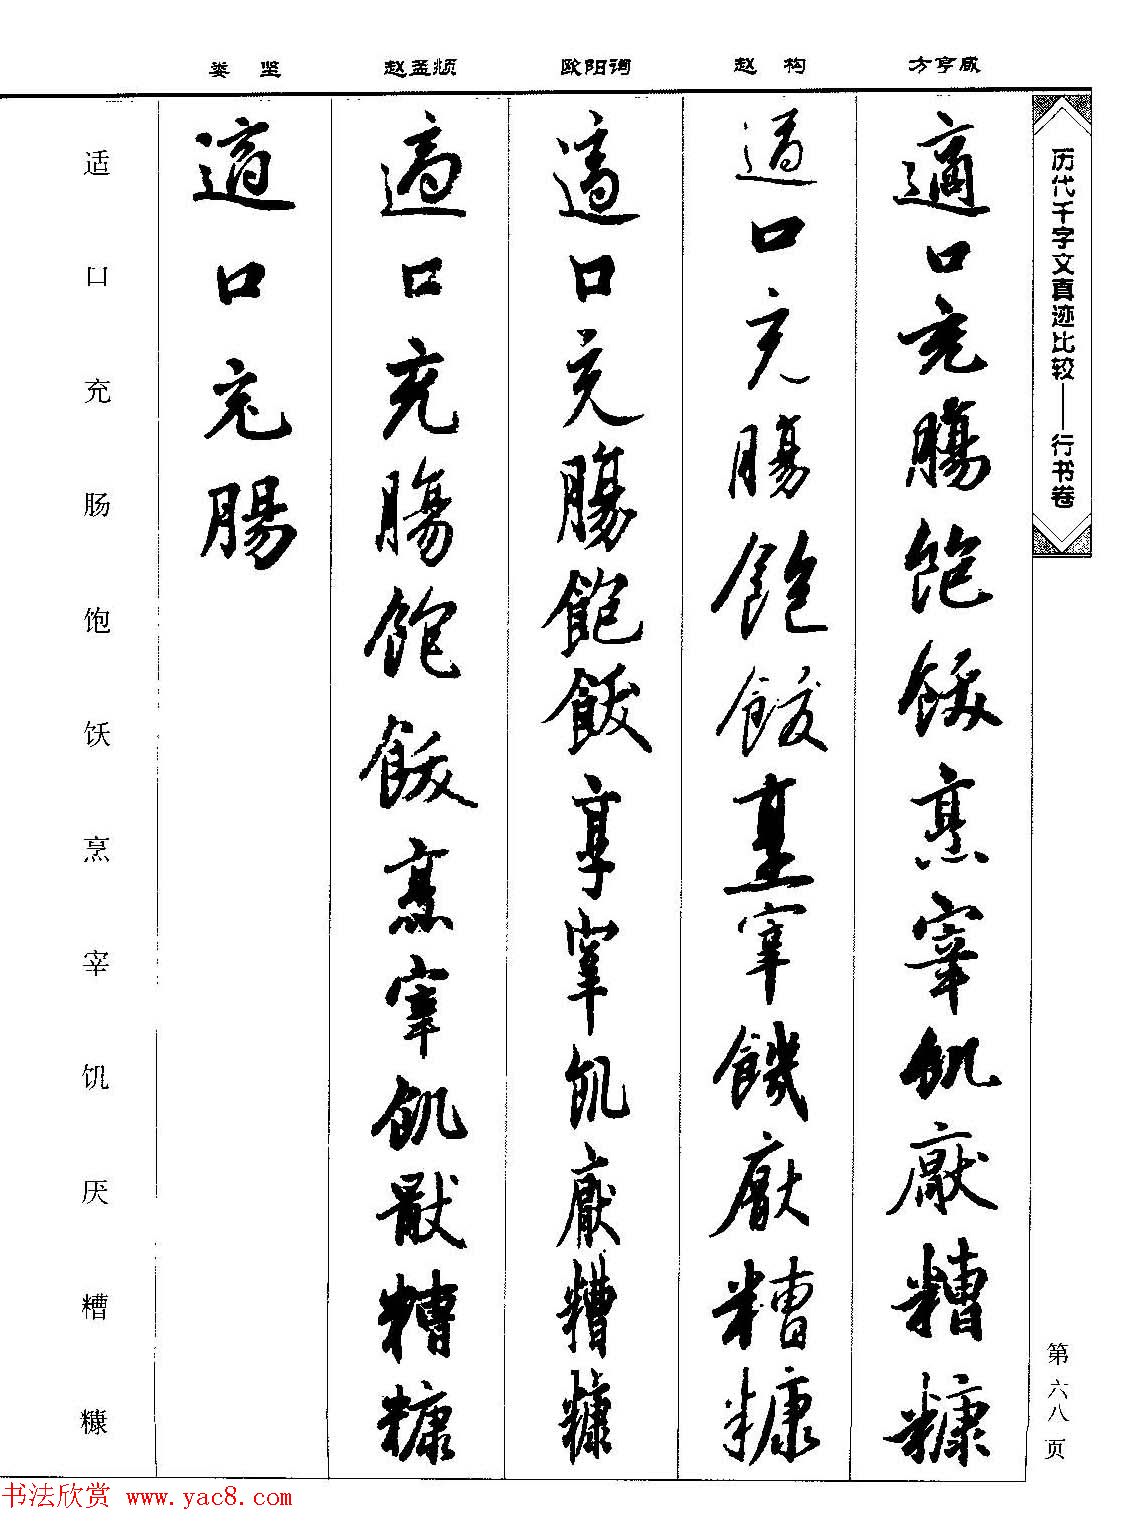 历代千字文真迹比较——行书卷
第六八页
方亨咸
適口充腸飽飫烹宰飢厭糟糠
赵构
適口充腸飽飫烹宰饑厭糟糠
欧阳询
適口充腸飽飫享宰飢厭糟糠
赵孟𫖯
適口充腸飽飫烹宰飢猒糟糠
娄坚
適口充腸
适口充肠饱饫烹宰饥厌糟糠
书法欣赏 www.yac8.com